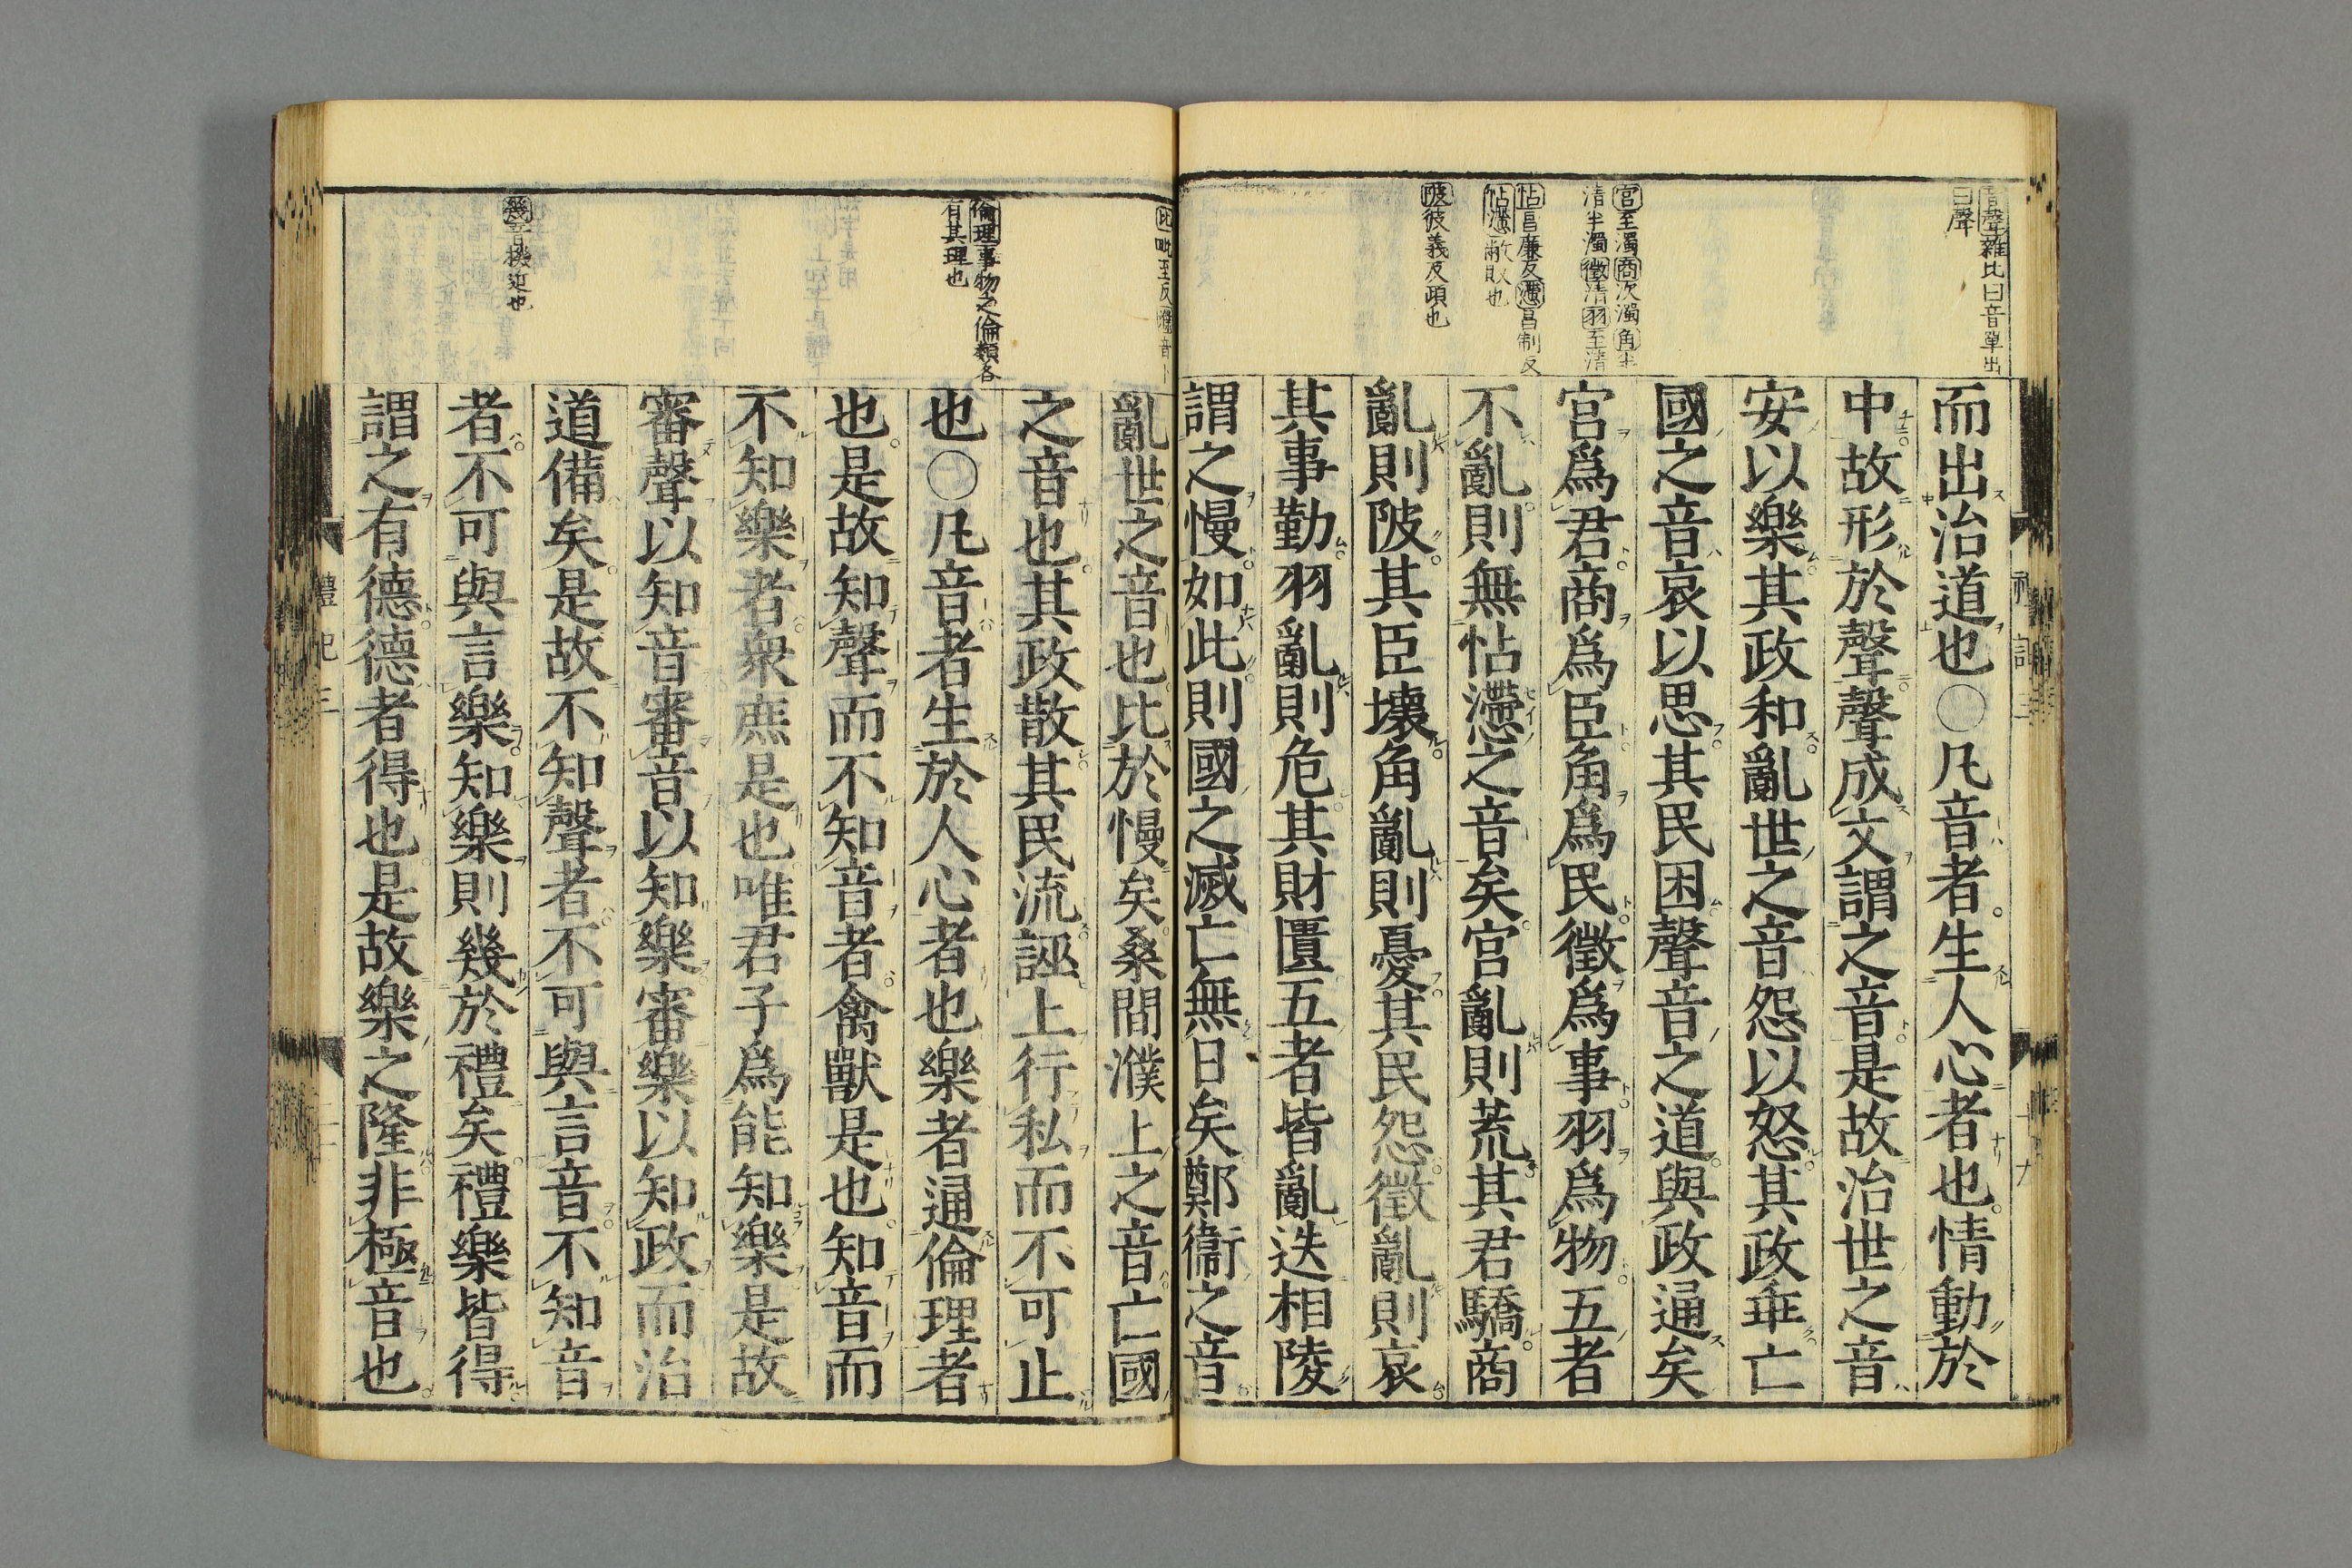 音聲雜比曰音單出
曰聲
宮至濁商次濁角半
清半濁徵清羽至清
怗昌廉反懘昌制反
怗懘敝敗也
陂彼義反頃也
而出治道也〇凡音者生人心者也情動於
中故形於聲聲成文謂之音是故治世之音
安以樂其政和亂世之音怨以怒其政乖亡
國之音哀以思其民困聲音之道與政通矣
宮爲君商爲臣角爲民徵爲事羽爲物五者
不亂則無怗懘之音矣宮亂則荒其君驕商
亂則陂其臣壞角亂則憂其民怨徵亂則哀
其事勤羽亂則危其財匱五者皆亂迭相陵
謂之慢如此則國之滅亡無日矣鄭衞之音
比毗至反濮音卜
倫理事物之倫類各
有其理也
幾音機近也
亂世之音也比於慢矣桑間濮上之音亡國
之音也其政散其民流誣上行私而不可止
也〇凡音者生於人心者也樂者通倫理者
也是故知聲而不知音者禽獸是也知音而
不知樂者衆庶是也唯君子爲能知樂是故
審聲以知音審音以知樂審樂以知政而治
道備矣是故不知聲者不可與言音不知音
者不可與言樂知樂則幾於禮矣禮樂皆得
謂之有德德者得也是故樂之隆非極音也
禮記三